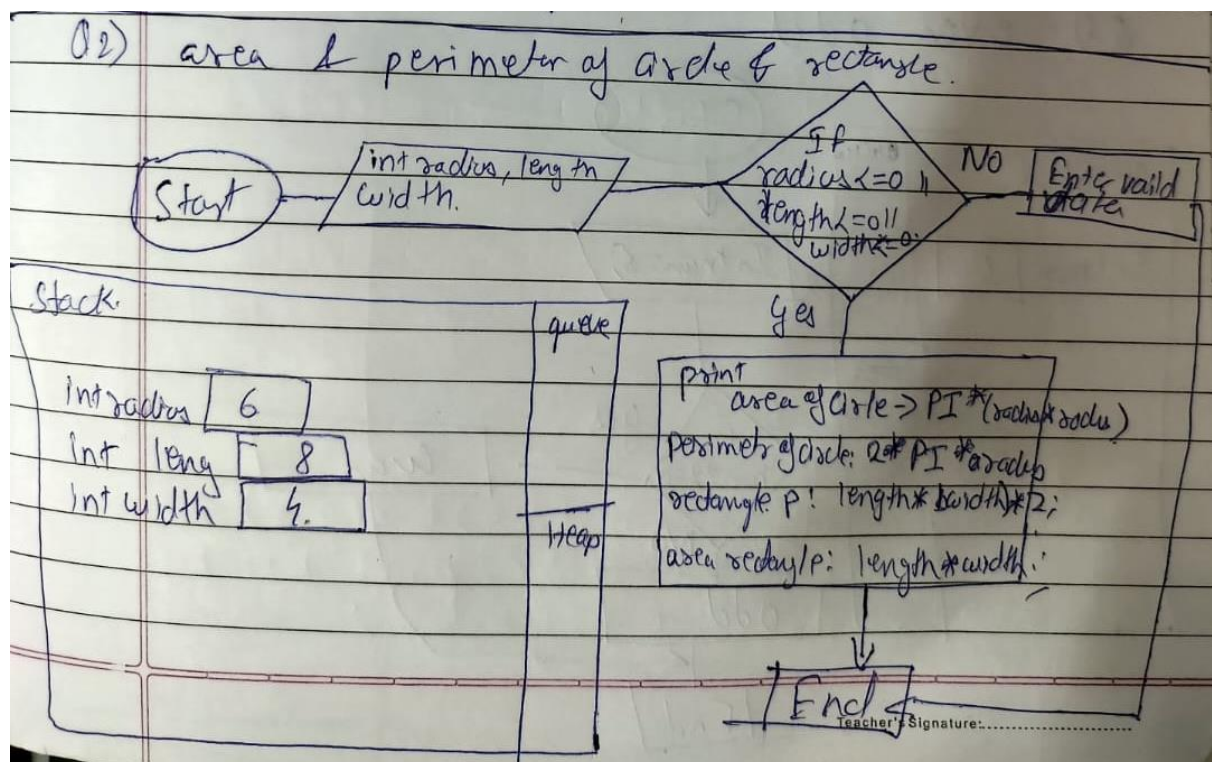 Q2) area & perimeter of circle & rectangle.
Start
int radius, length
width.
If
radius<=0 ||
length<=0||
width<=0;
No
Enter vaild
data
Yes
Stack.
queue
Heap
int radius 6
Int leng 8
int width 4.
print
area of Cirle -> PI *(radius*radus)
Perimetr of circle: 2* PI *
rectangle p: length* width)*2;
area rectangle: length*width.
End
Teacher's Signature: